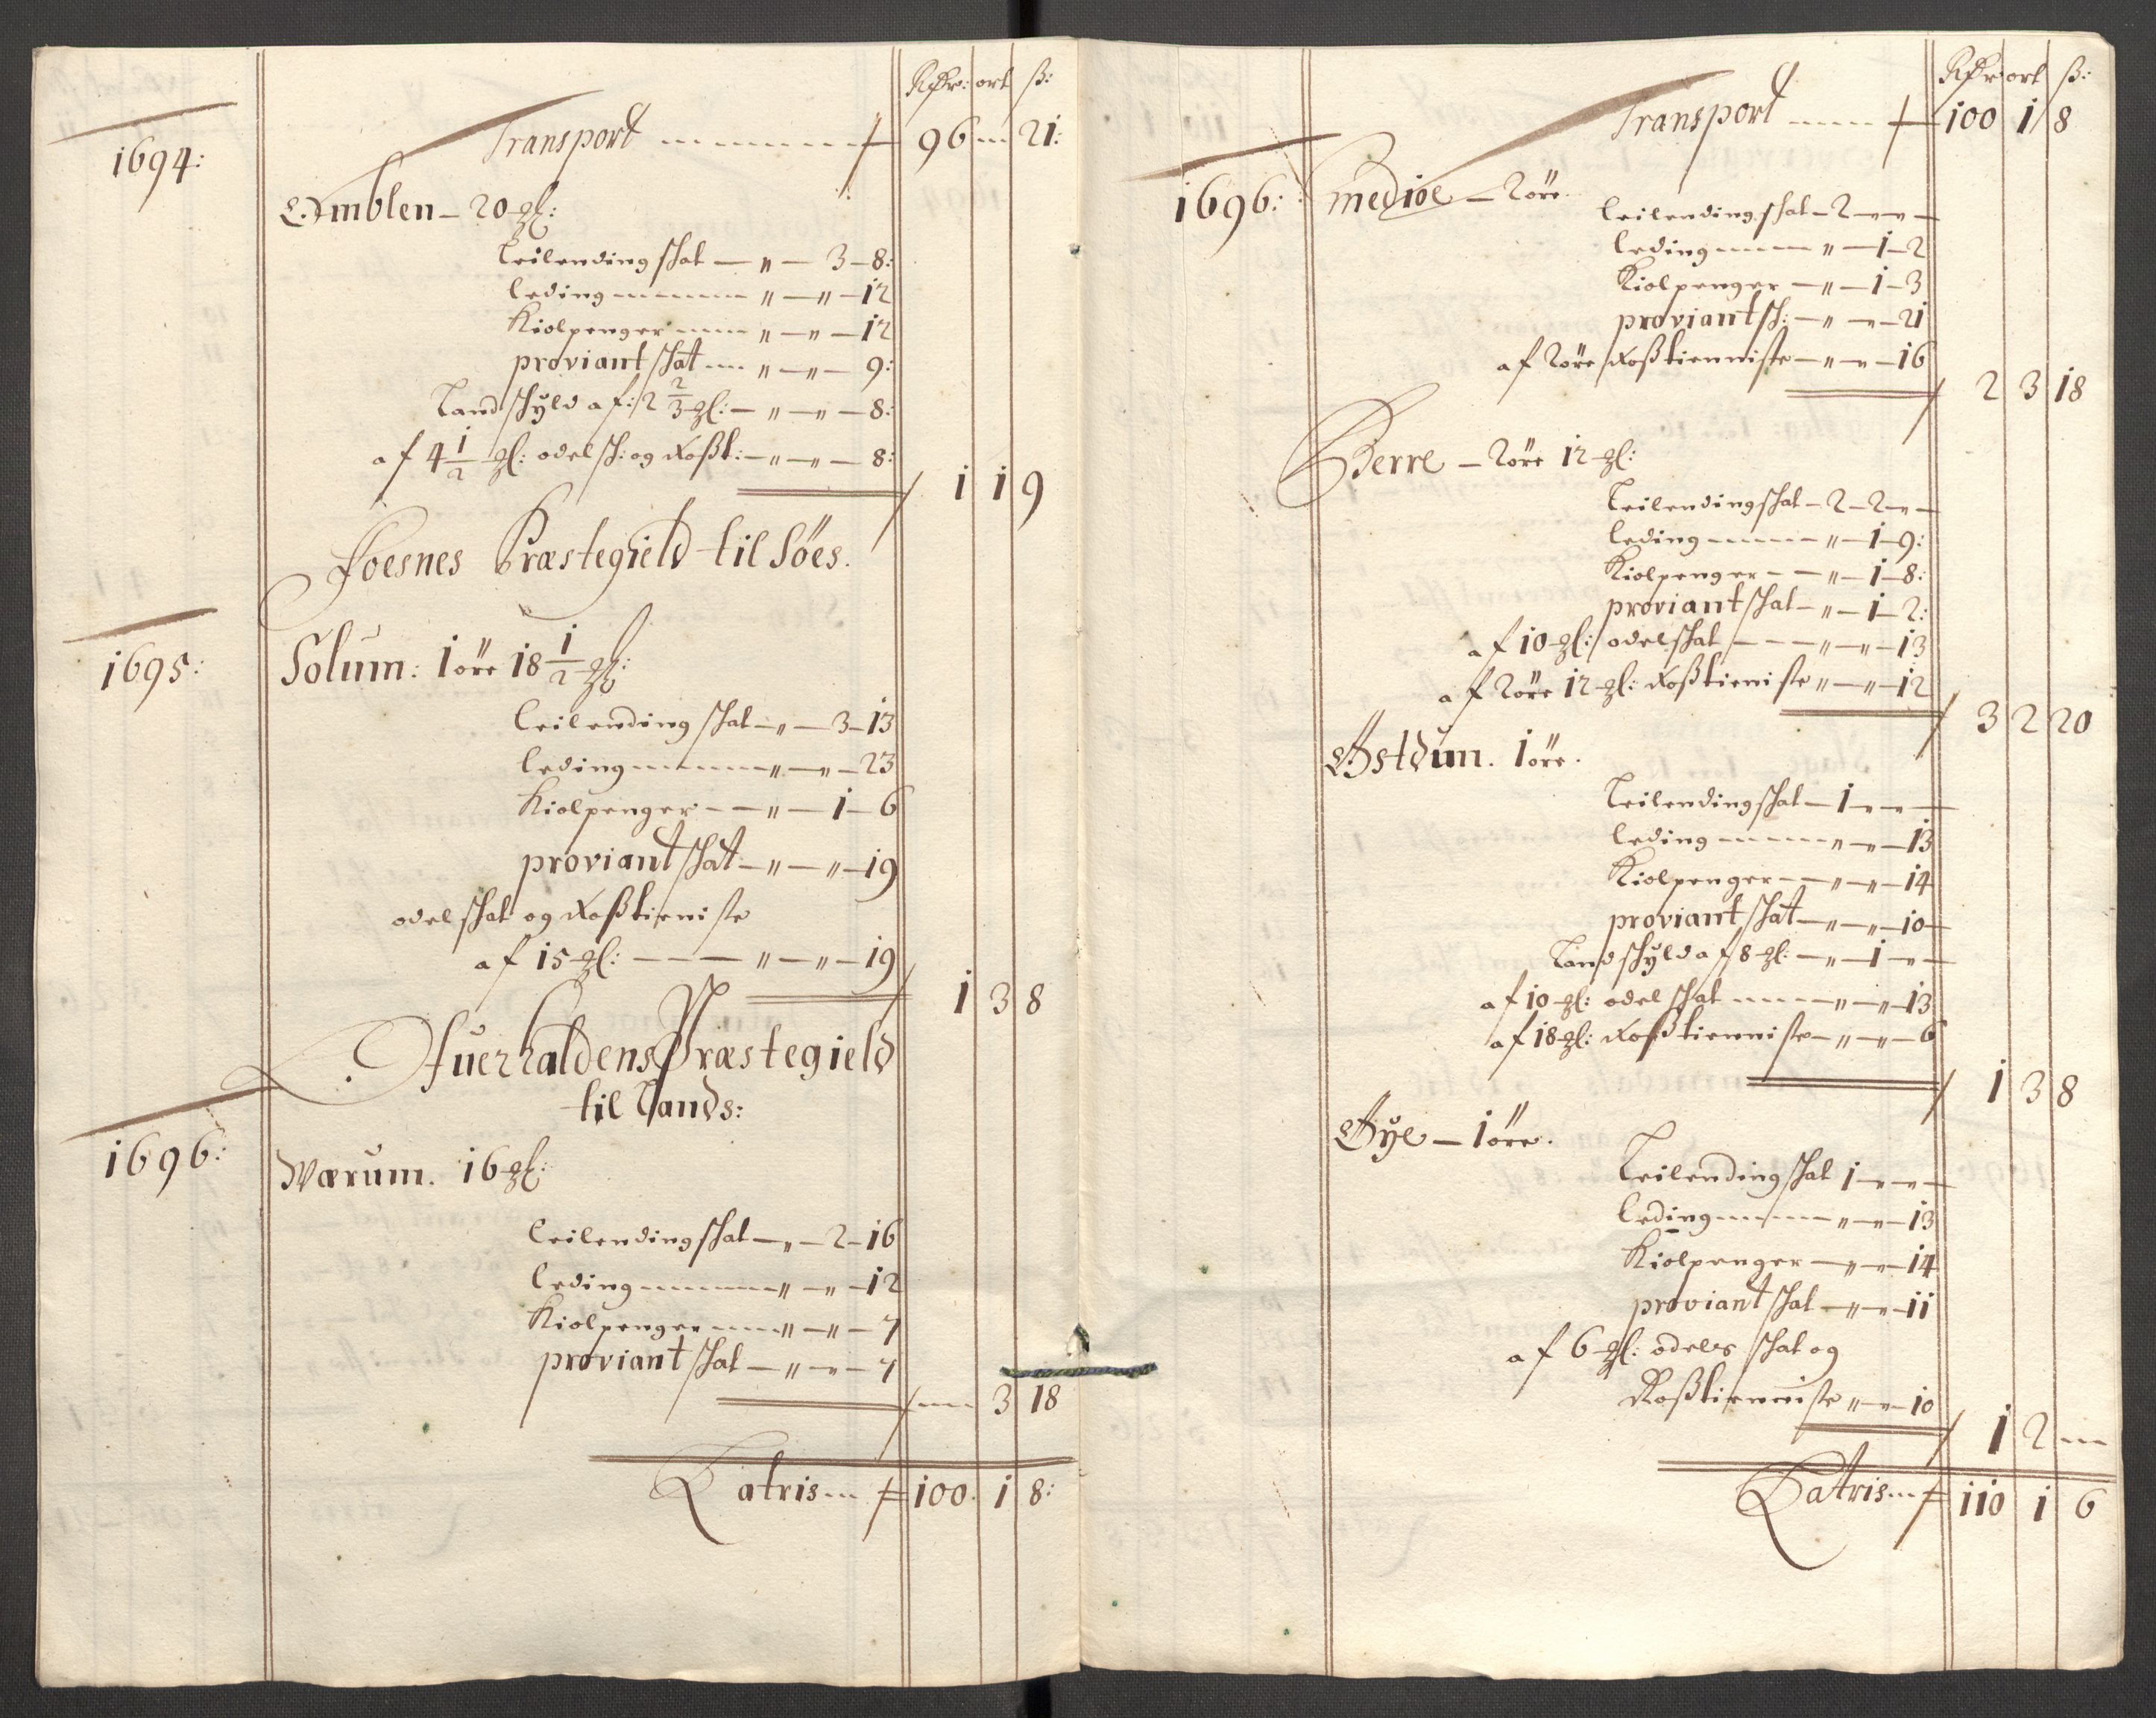 Rdr: ort ß:
1694:
Transport 96 „ 21:
Emblen – 20 gl:
Leilending schat – „ – 3 – 8:
leding „ – „ – 12
Kiolpenger „ – „ – 12
proviant schat „ – „ – 9:
Landschyld af: 2 2/3 gl: – „ – „ – 8:
af 4 1/2 gl: odelsch: og Roßt: – „ – „ – 8:
1 1 9
Foesnes Præstegield til Søes.
1695:
Solum: 1 öre 18 1/2 gl:
leilending schat – „ – 3 – 13
leding „ – „ – 23
Kiolpenger – „ – 1 – 6
proviant schat – „ – „ – 19
odelschat og Roßtieniste
af 15 gl: – „ – „ – 19
1 3 8
Ofuerhaldens Præstegield
til Lands:
1696:
Wærum. 16 gl:
leilending schat – „ – 2 – 16
leding „ – „ – 12
Kiolpenger „ – „ – 7
proviant schat – „ – „ – 7
„ 3 18
Latris 100 1 8:
Rdr ort ß:
Transport 100 1 8
1696:
Medioe – 2 öre.
leilending schat – 2 – „ –
leding „ – 1 – 2
Kiolpenger – „ – 1 – 3
proviant sch: – „ – „ – 21
af 2 öre Roßtienniste – „ – „ – 16
2 3 18
Berre – 2 öre 12 gl:
Leilending schat – 2 – 2 – „ –
leding „ – 1 – 9:
Kiolpenger – „ – 1 – 8:
proviant schat – „ – 1 – 2:
af 10 gl: odelschat – „ – „ – 13
af 2 öre 12 gl: Roßtieniste „ – „ – 12
3 2 20
Østdum. 1 öre.
Leilending schat – 1 – „ – „ –
leding „ – „ – 13
Kiolpenger – „ – „ – 14
proviant schat – „ – „ – 10
Landschyld af 8 gl: – „ – 1 – „ –
af 10 gl: odel schat „ – „ – 13
af 18 gl: Roßtienniste – „ – „ – 6
1 3 8
Øye – 1 öre.
Leilending schat 1 – „ – „ –
leding „ – „ – 13
Kiolpenger – „ – „ – 14
proviant schat – „ – „ – 11
af 6 gl: odels schat og
Roßtienniste „ – „ – 10
1 2 „
Latris 110 1 6